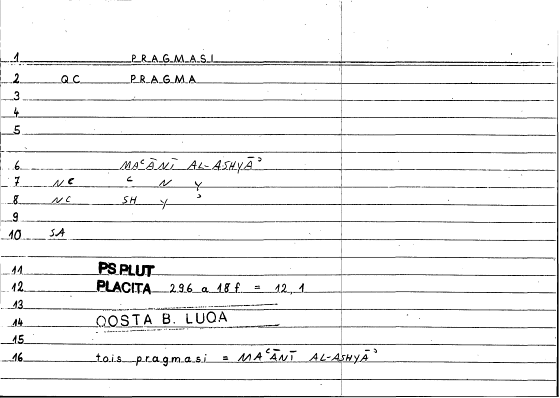 1 PRAGMASI
2 QC PRAGMA
3
4
5
6 MAʿĀNĪ AL-ASHYĀʾ
7 NC ʿ N Y
8 NC SH Y ʾ
9
10 SA
11 PS PLUT
12 PLACITA 296 a 18 f = 12,1
13
14 QOSTA B. LUQA
15
16 tois pragmasi = MAʿĀNĪ AL-ASHYĀʾ